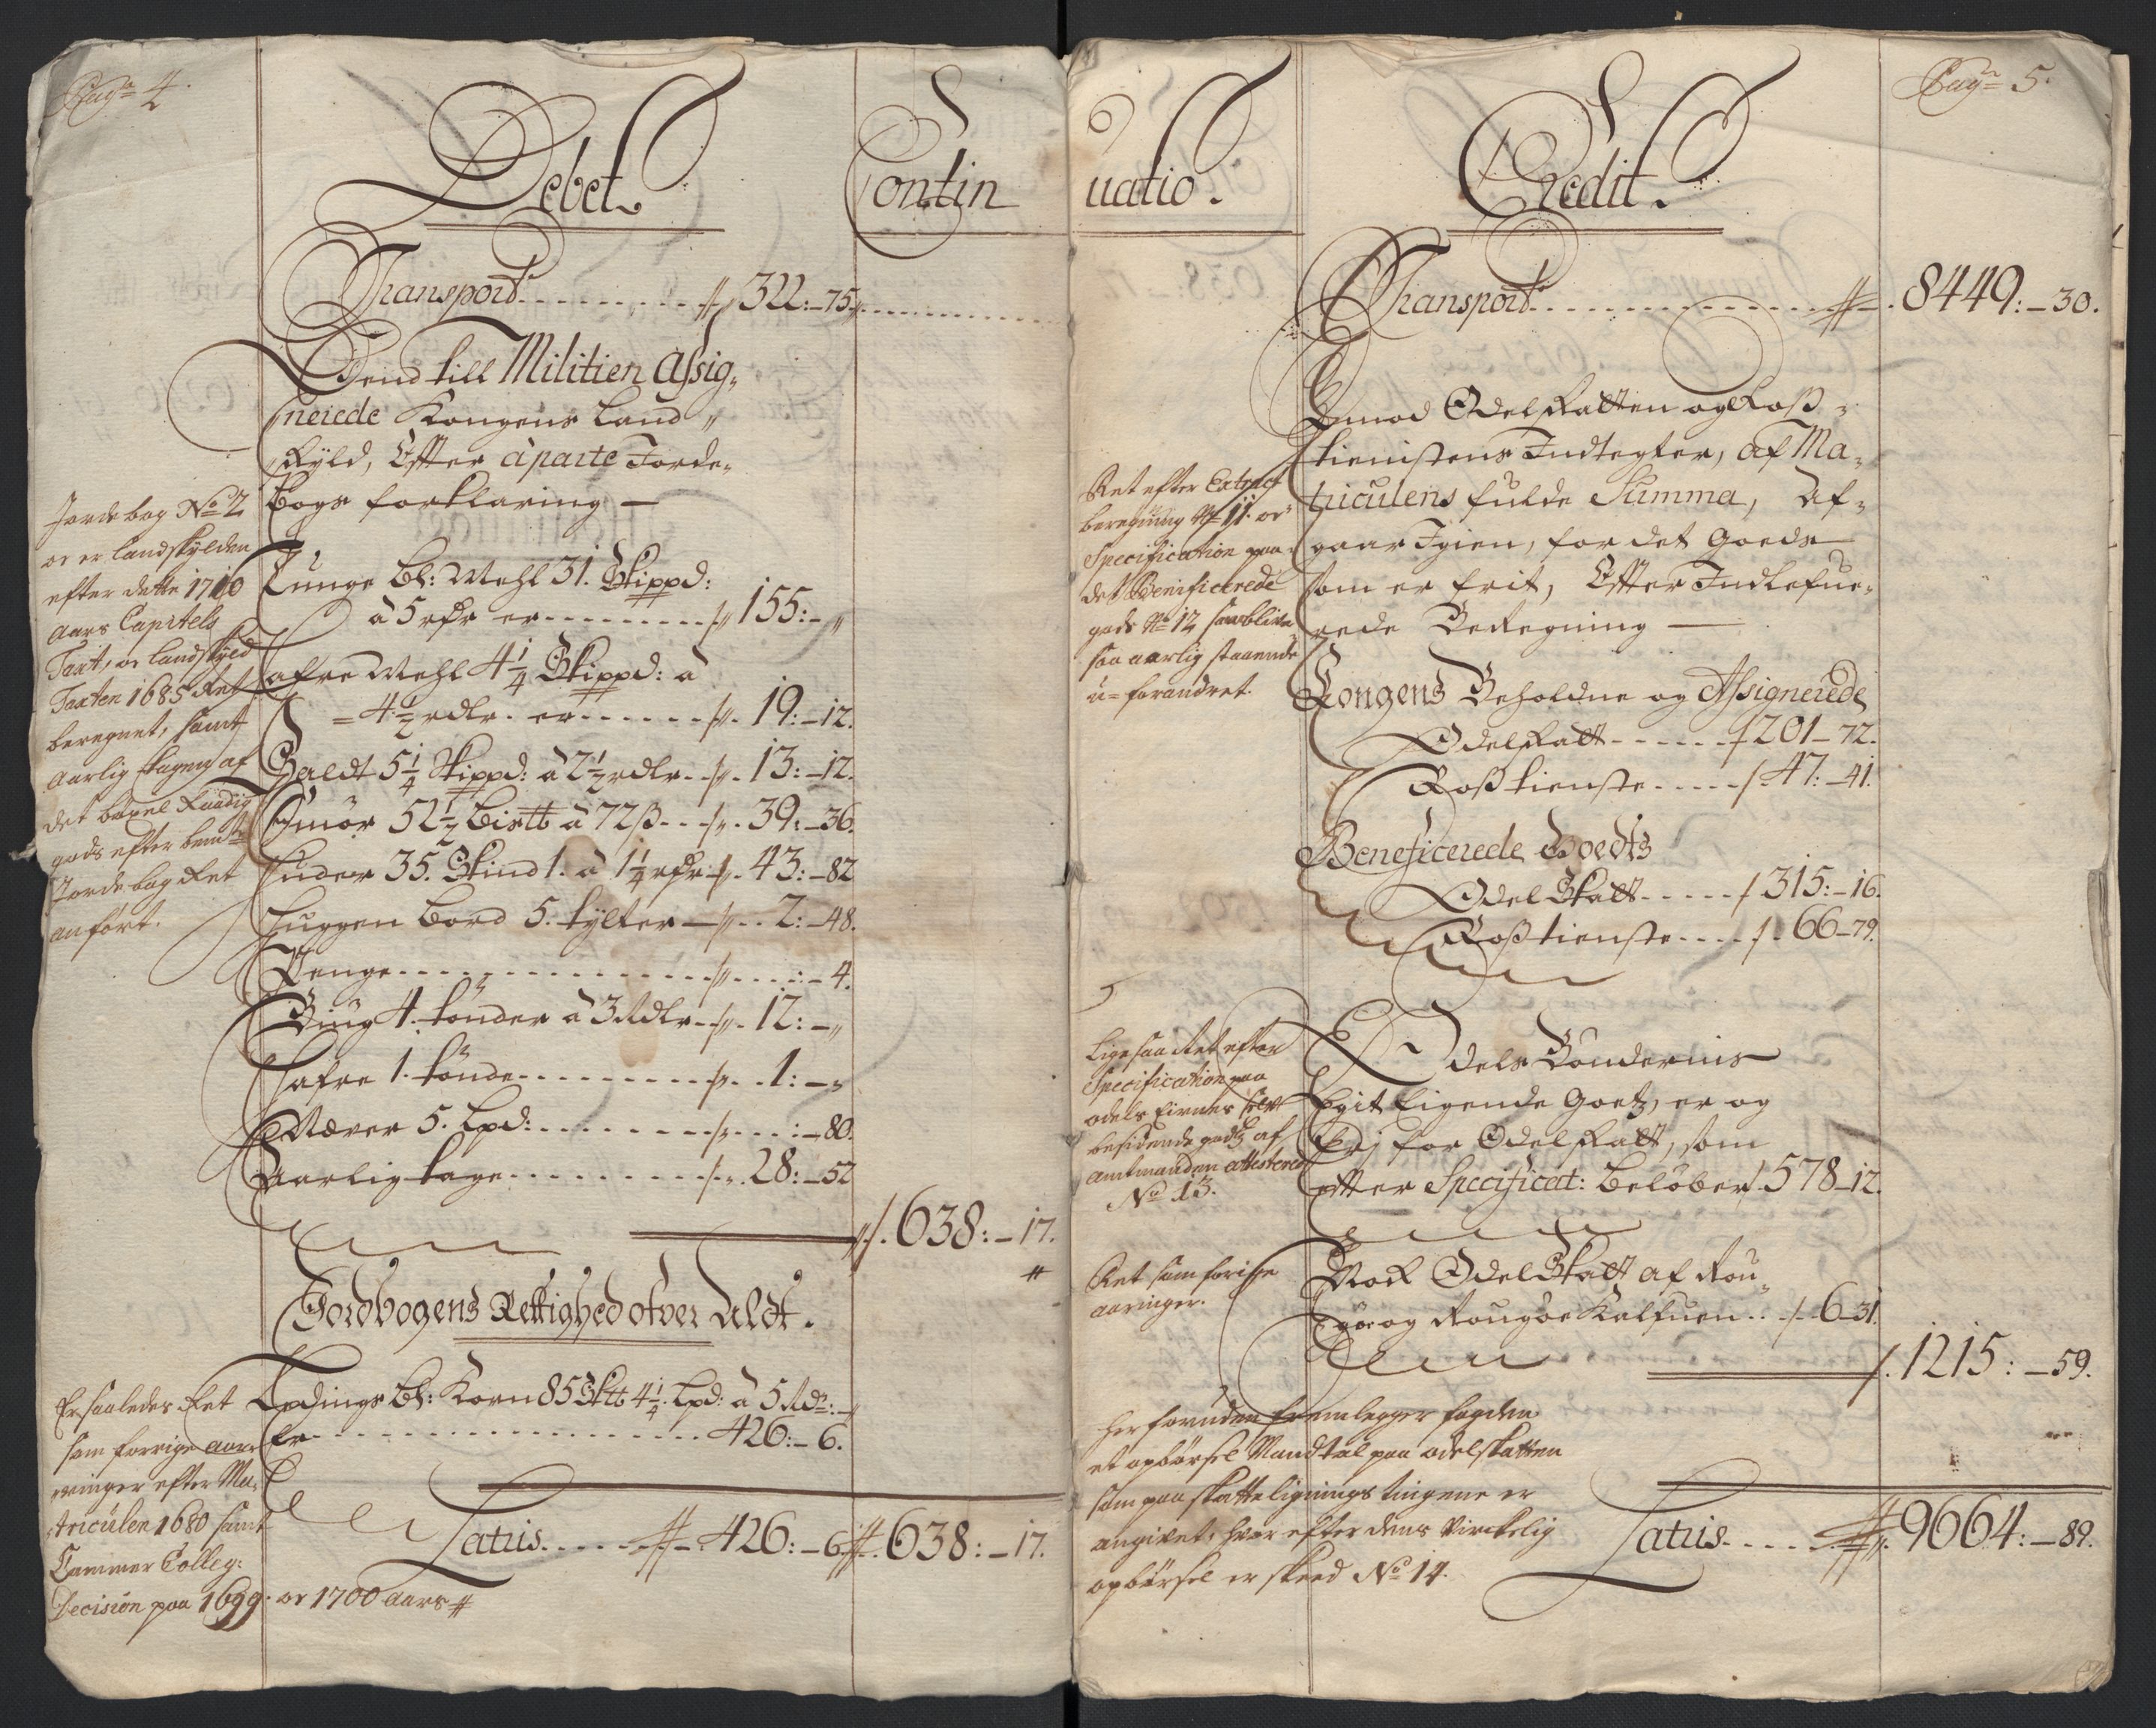 Pag: 4
Debet
Contin
Transport - - - 322:-75
Dend till Militien Assig-
nerede Kongens Land-
skyld, Efter àparte Jorde-
bogs forklaring —
Tunge bl: Mehl 31. Skippd:
à 5 rdr er - - - 155:-
Hafre Mehl 4 1/4 Skippd: à
4 1/2 rdlr. er - - - 19:-12.
Saldt 5 1/4 Skippd: à 2 1/2 rdlr - - 13:-12.
Smör 52 1/2 à 72 ß - - - 39:-36.
Huder 35. Skind 1. à 1 1/4 rdr - 43:-82
Huggen Bord 5. tylter - - 2:-48.
Penge - - - :-4.
Biug 4. tönder à 3 Rdlr - - 12:-
Hafre 1. tönde - - - 1:-
Næver 5. Lpd: - - - :-80.
Aarlig tage - - - 28:-52
638:-17.
Jordbogens Rettighed ofver Aldt.
Ledings bl: Korn 85 Sktt 4 1/4 Lpd: à 5 Rdr:
Er - - - 426:-6.
Latus - - - 426:-6 638:-17.
Jordebog No 2
oc er landskylden
efter dette 1710
aars Capitels
Taxt, oc landskyld
Taxten 1685 Ret
beregnet, samt
aarlig tagen af
det
gods efter bemte
Jordebog Ret
anfört.
Er saaledes Ret
som forrige aar-
ringer efter Ma-
triculen 1680 samt
Cammer Colleg:
Decision paa 1699. oc 1700 aars
Pag: 5.
uatio.
Credit.
Transport - - - 8449:-30.
Imod Odelskatten og Ross-
tienistens Indtegter, af Ma-
triculens fulde Summa, Af-
gaar Igien, for det Goeds
som er frit, Efter Indlefue-
rede Beregning —
Kongens Beholdne og Assignerede
Odelskatt - - - 201-72.
Rosstieniste - - - 47:-41.
Beneficerede Goedts
Odel Skatt - - - 315:-16.
Rosstieniste - - - 66-79.
Odels Böndernis
Egit Eigende Goetz, er og
Frj for Odelskatt, som
efter Specificat: belöber 578-12.
Nock Odel Skatt af Rou-
göe og Rougöe Kalfuen - - 6-31.
1215:-59.
Latus - - - 9664:-89.
Ret efter Extract
beregning No 11. oc
Specification paa
det Benificerede
gods No 12 som bliver
saa aarlig staaende
u-forandret.
Ligesaa Ret efter
Specification paa
odels Eiernes selv
besidende gods af
amtmanden attestered
No 13.
Ret som forige
aaringer.
Herforuden fremlegger fogden
et opbørsel Mandtal paa odelskatten
som paa skatteligningstingene er
angivet, hvor efter dens Virckelig
opbørsel er skeed No 14.